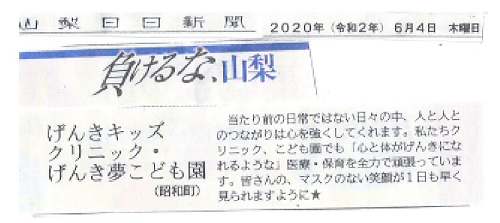 山梨日日新聞
2020年（令和2年）6月4日 木曜日
負けるな、山梨
げんきキッズ
クリニック・
げんき夢こども園
（昭和町）
当たり前の日常ではない日々の中、人と人と
のつながりは心を強くしてくれます。私たちク
リニック、こども園でも「心と体がげんきにな
れるような」医療・保育を全力で頑張っていま
す。皆さんの、マスクのない笑顔が1日も早く
見られますように★